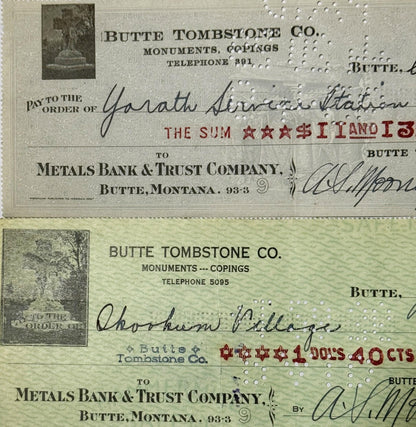 BUTTE TOMBSTONE CO.
MONUMENTS, COPINGS
TELEPHONE 391
BUTTE,
PAY TO THE
ORDER OF Yorath Service Station
THE SUM ★★★$11 AND 13
BUTTE
TO
METALS BANK & TRUST COMPANY,
BUTTE, MONTANA. 93-3 9
BUTTE TOMBSTONE CO.
MONUMENTS --- COPINGS
TELEPHONE 5095
BUTTE,
TO THE
ORDER OF Skookum Village
Butte
Tombstone Co.
★★★★1 DOL'S 40 CTS
BUTTE
TO
METALS BANK & TRUST COMPANY,
BUTTE, MONTANA. 93-3 9
BY